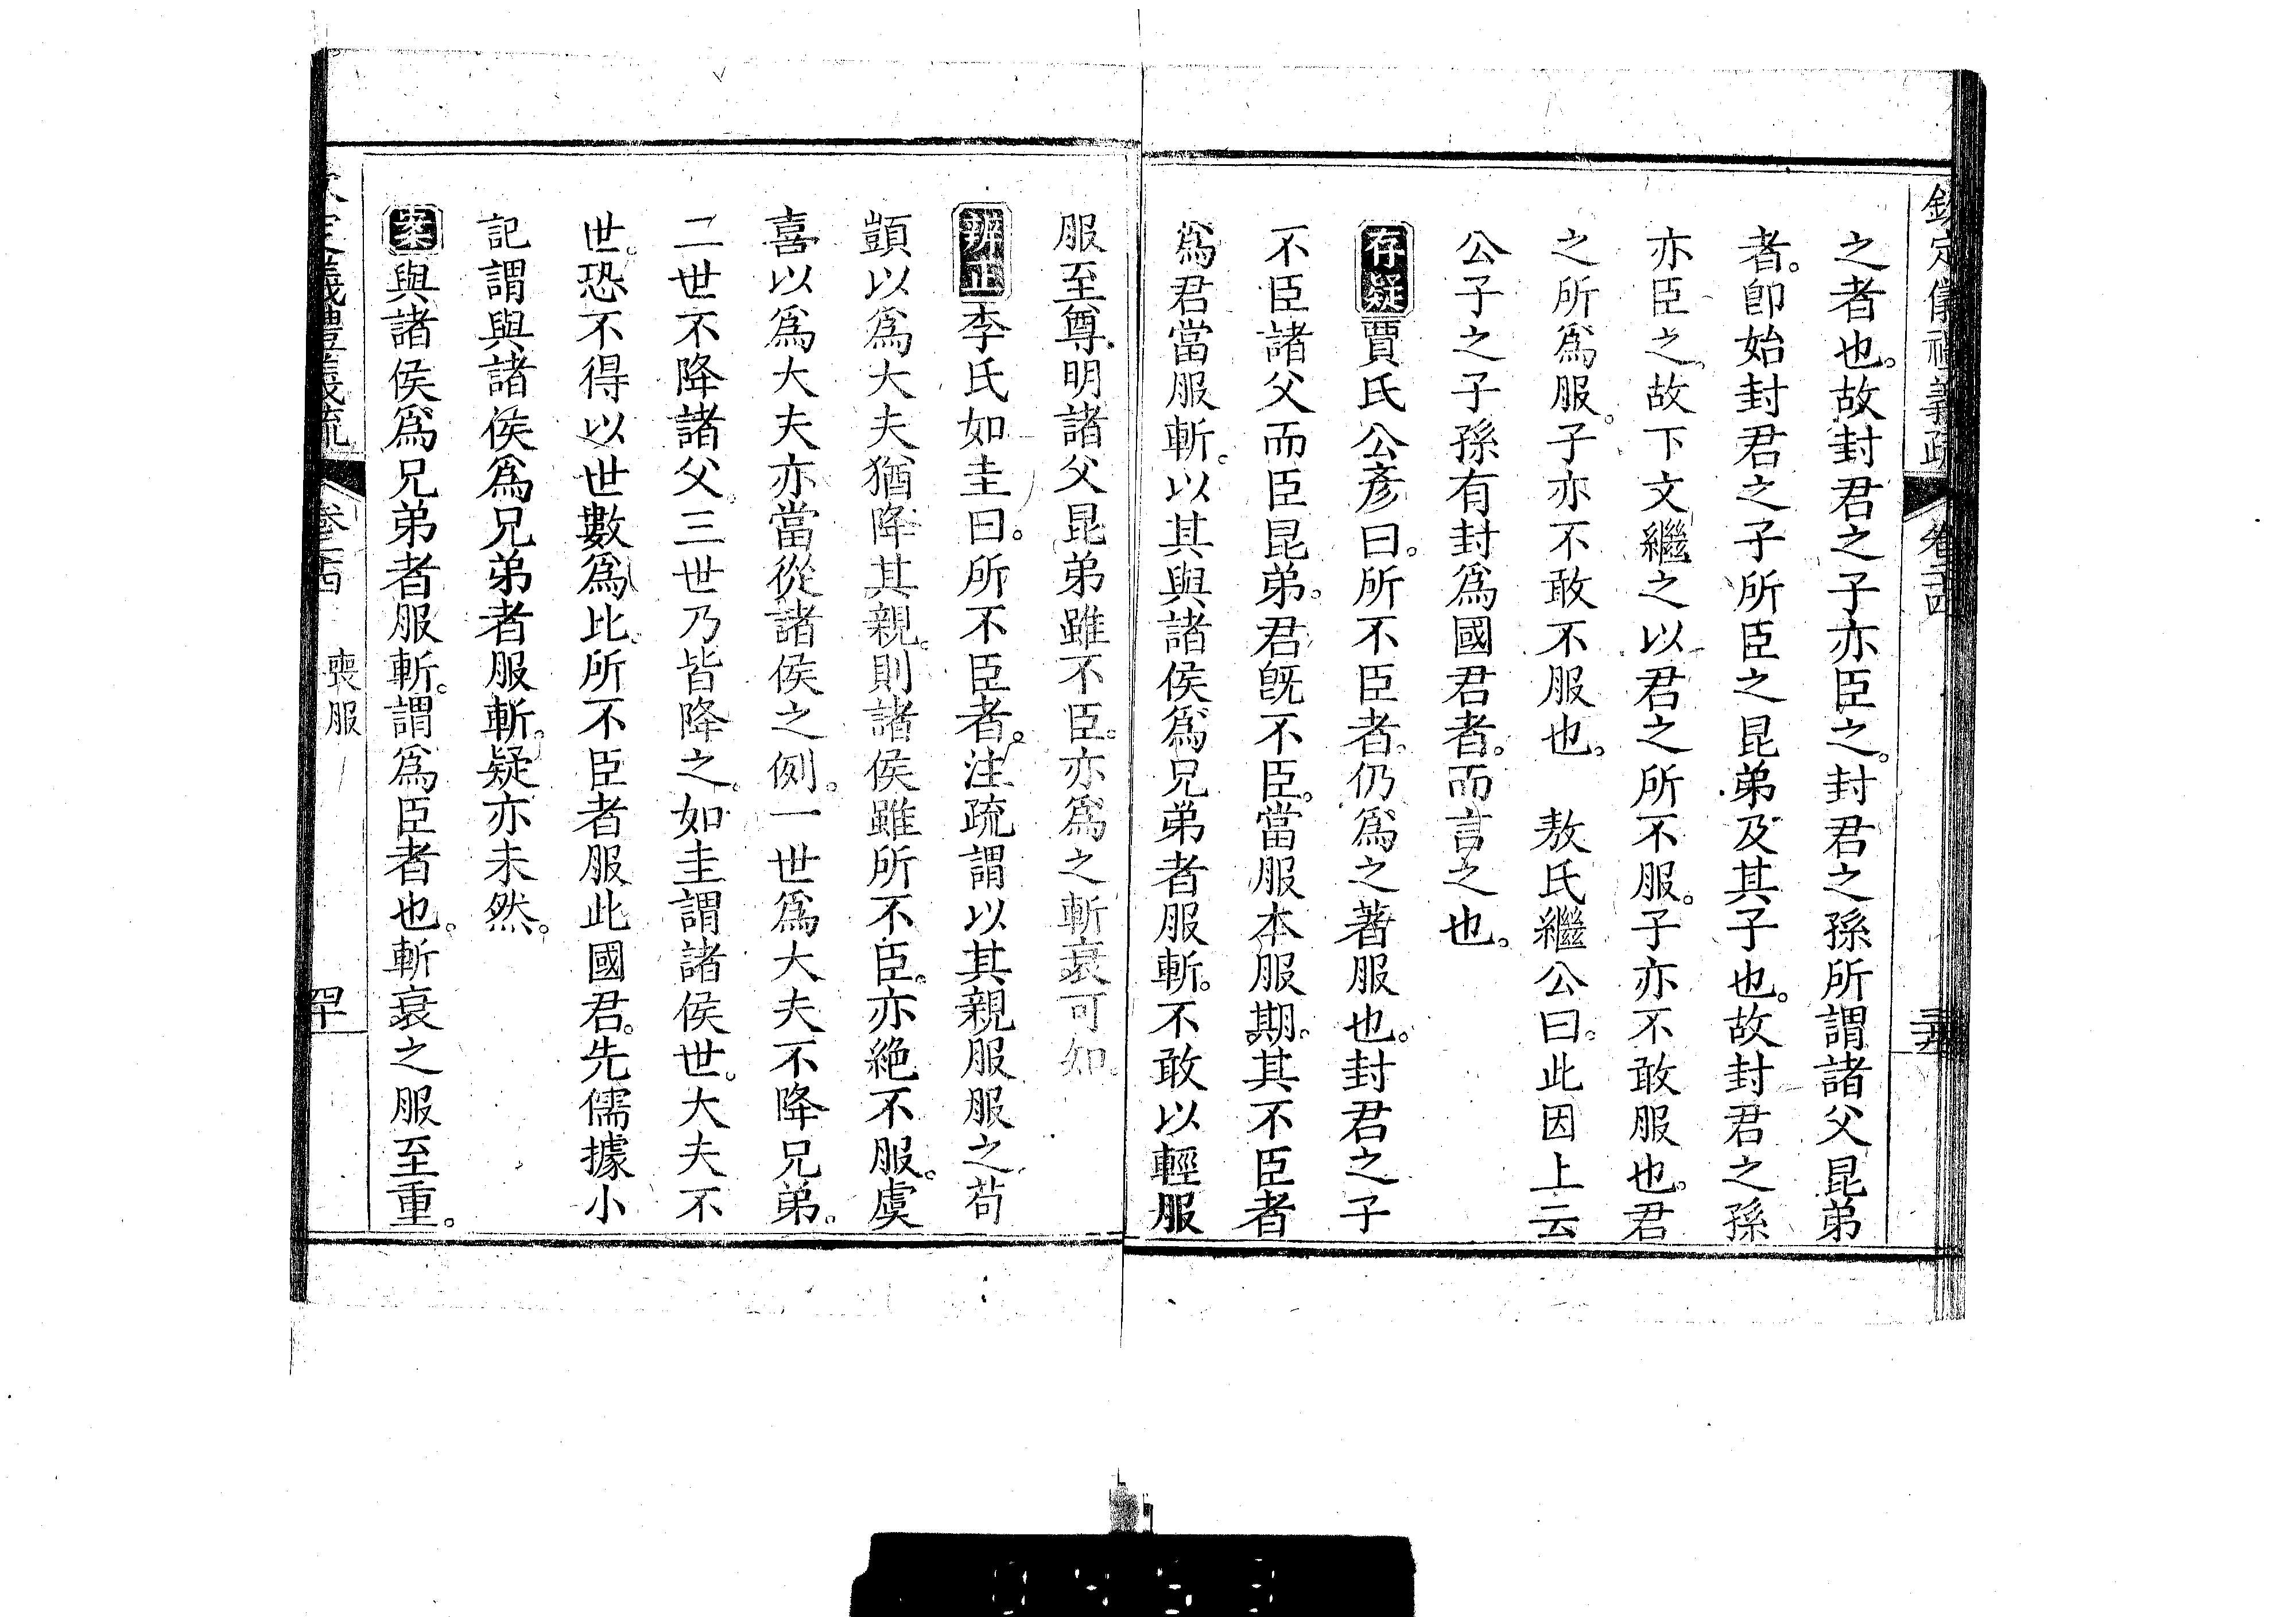 欽定儀禮義疏 卷二十四
之者也。故封君之子亦臣之。封君之孫所謂諸父昆弟
者。卽始封君之子所臣之昆弟及其子也。故封君之孫
亦臣之。故下文繼之以君之所不服。子亦不敢服也。君
之所爲服。子亦不敢不服也。 敖氏繼公曰。此因上云
公子之子孫有封爲國君者。而言之也。
存疑賈氏公彥曰。所不臣者。仍爲之著服也。封君之子
不臣諸父而臣昆弟。君旣不臣。當服本服期。其不臣者
爲君當服斬。以其與諸侯爲兄弟者服斬。不敢以輕服
服至尊。明諸父昆弟雖不臣。亦爲之斬衰可知。
辨正李氏如圭曰。所不臣者。注疏謂以其親服服之。荀
顗以爲大夫猶降其親。則諸侯雖所不臣。亦絶不服。虞
喜以爲大夫亦當從諸侯之例。一世爲大夫不降兄弟。
二世不降諸父。三世乃皆降之。如圭謂諸侯世。大夫不
世。恐不得以世數爲比。所不臣者服此國君。先儒據小
記謂與諸侯爲兄弟者服斬。疑亦未然。
案與諸侯爲兄弟者服斬。謂爲臣者也。斬衰之服至重。
欽定儀禮義疏 卷二十四 喪服 四十